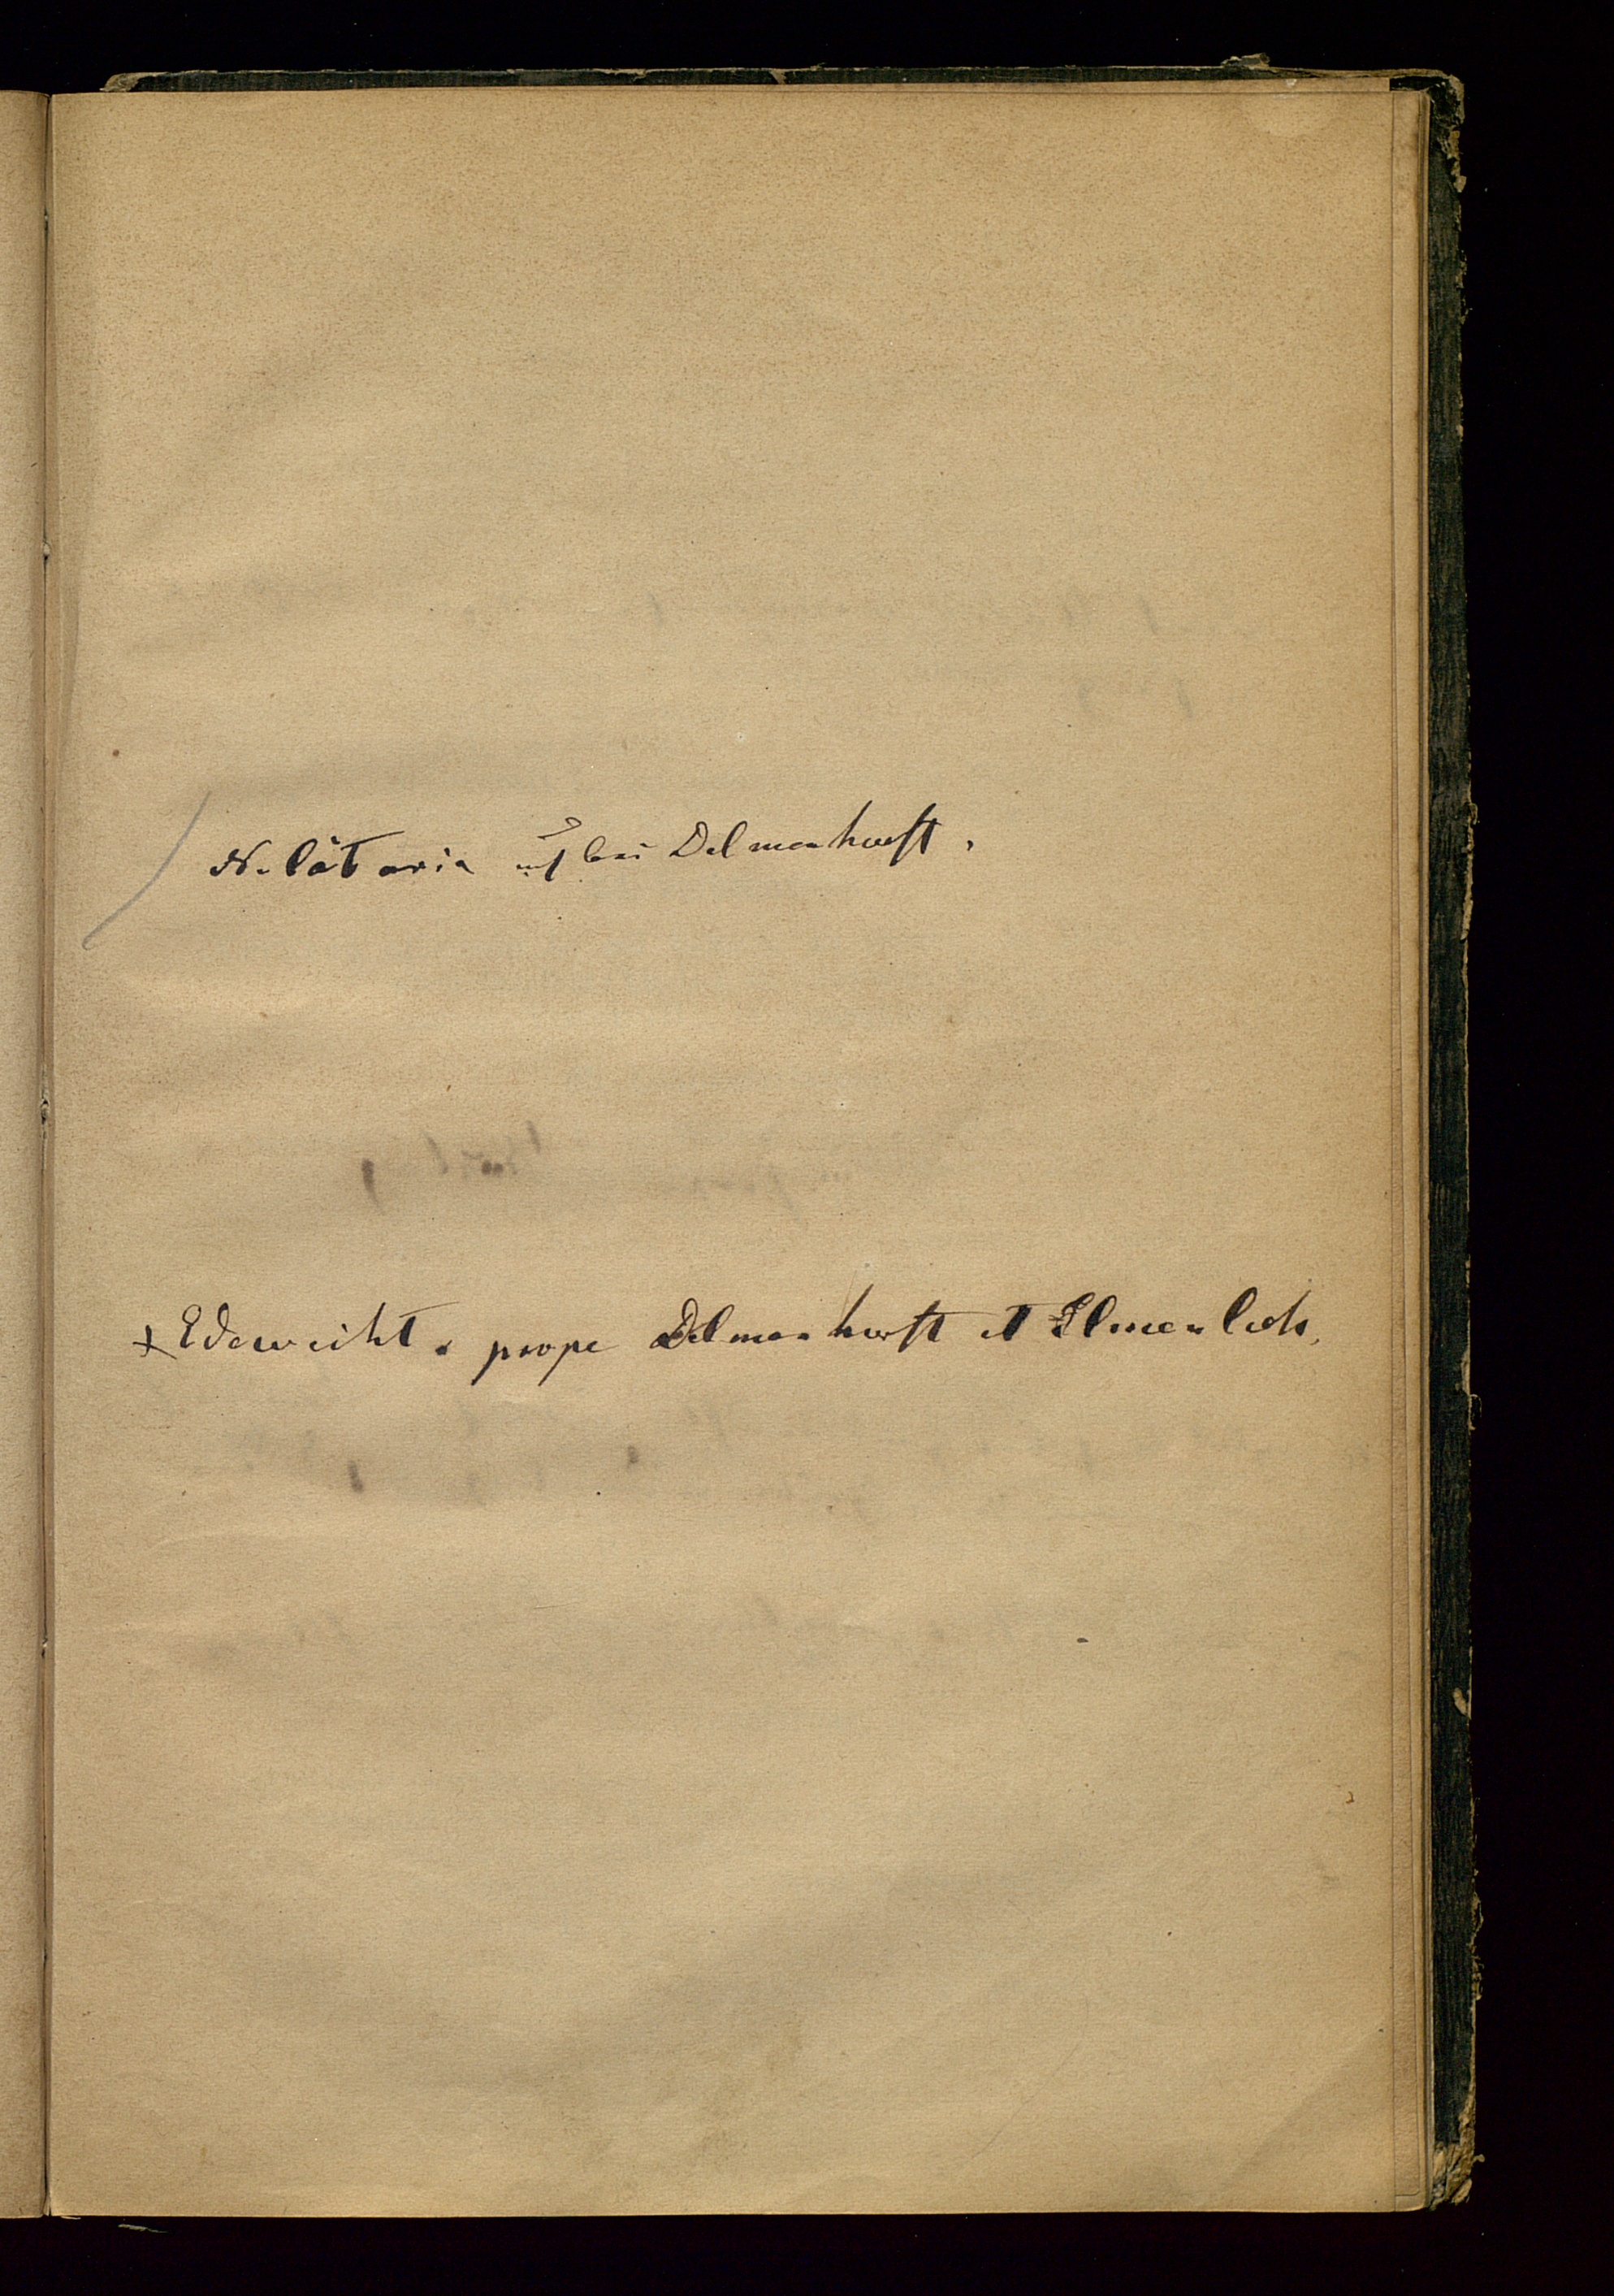 N. lataria auf bei Delmenhorst.
+ Edewicht. prope Delmenhorst et Elmenloh.